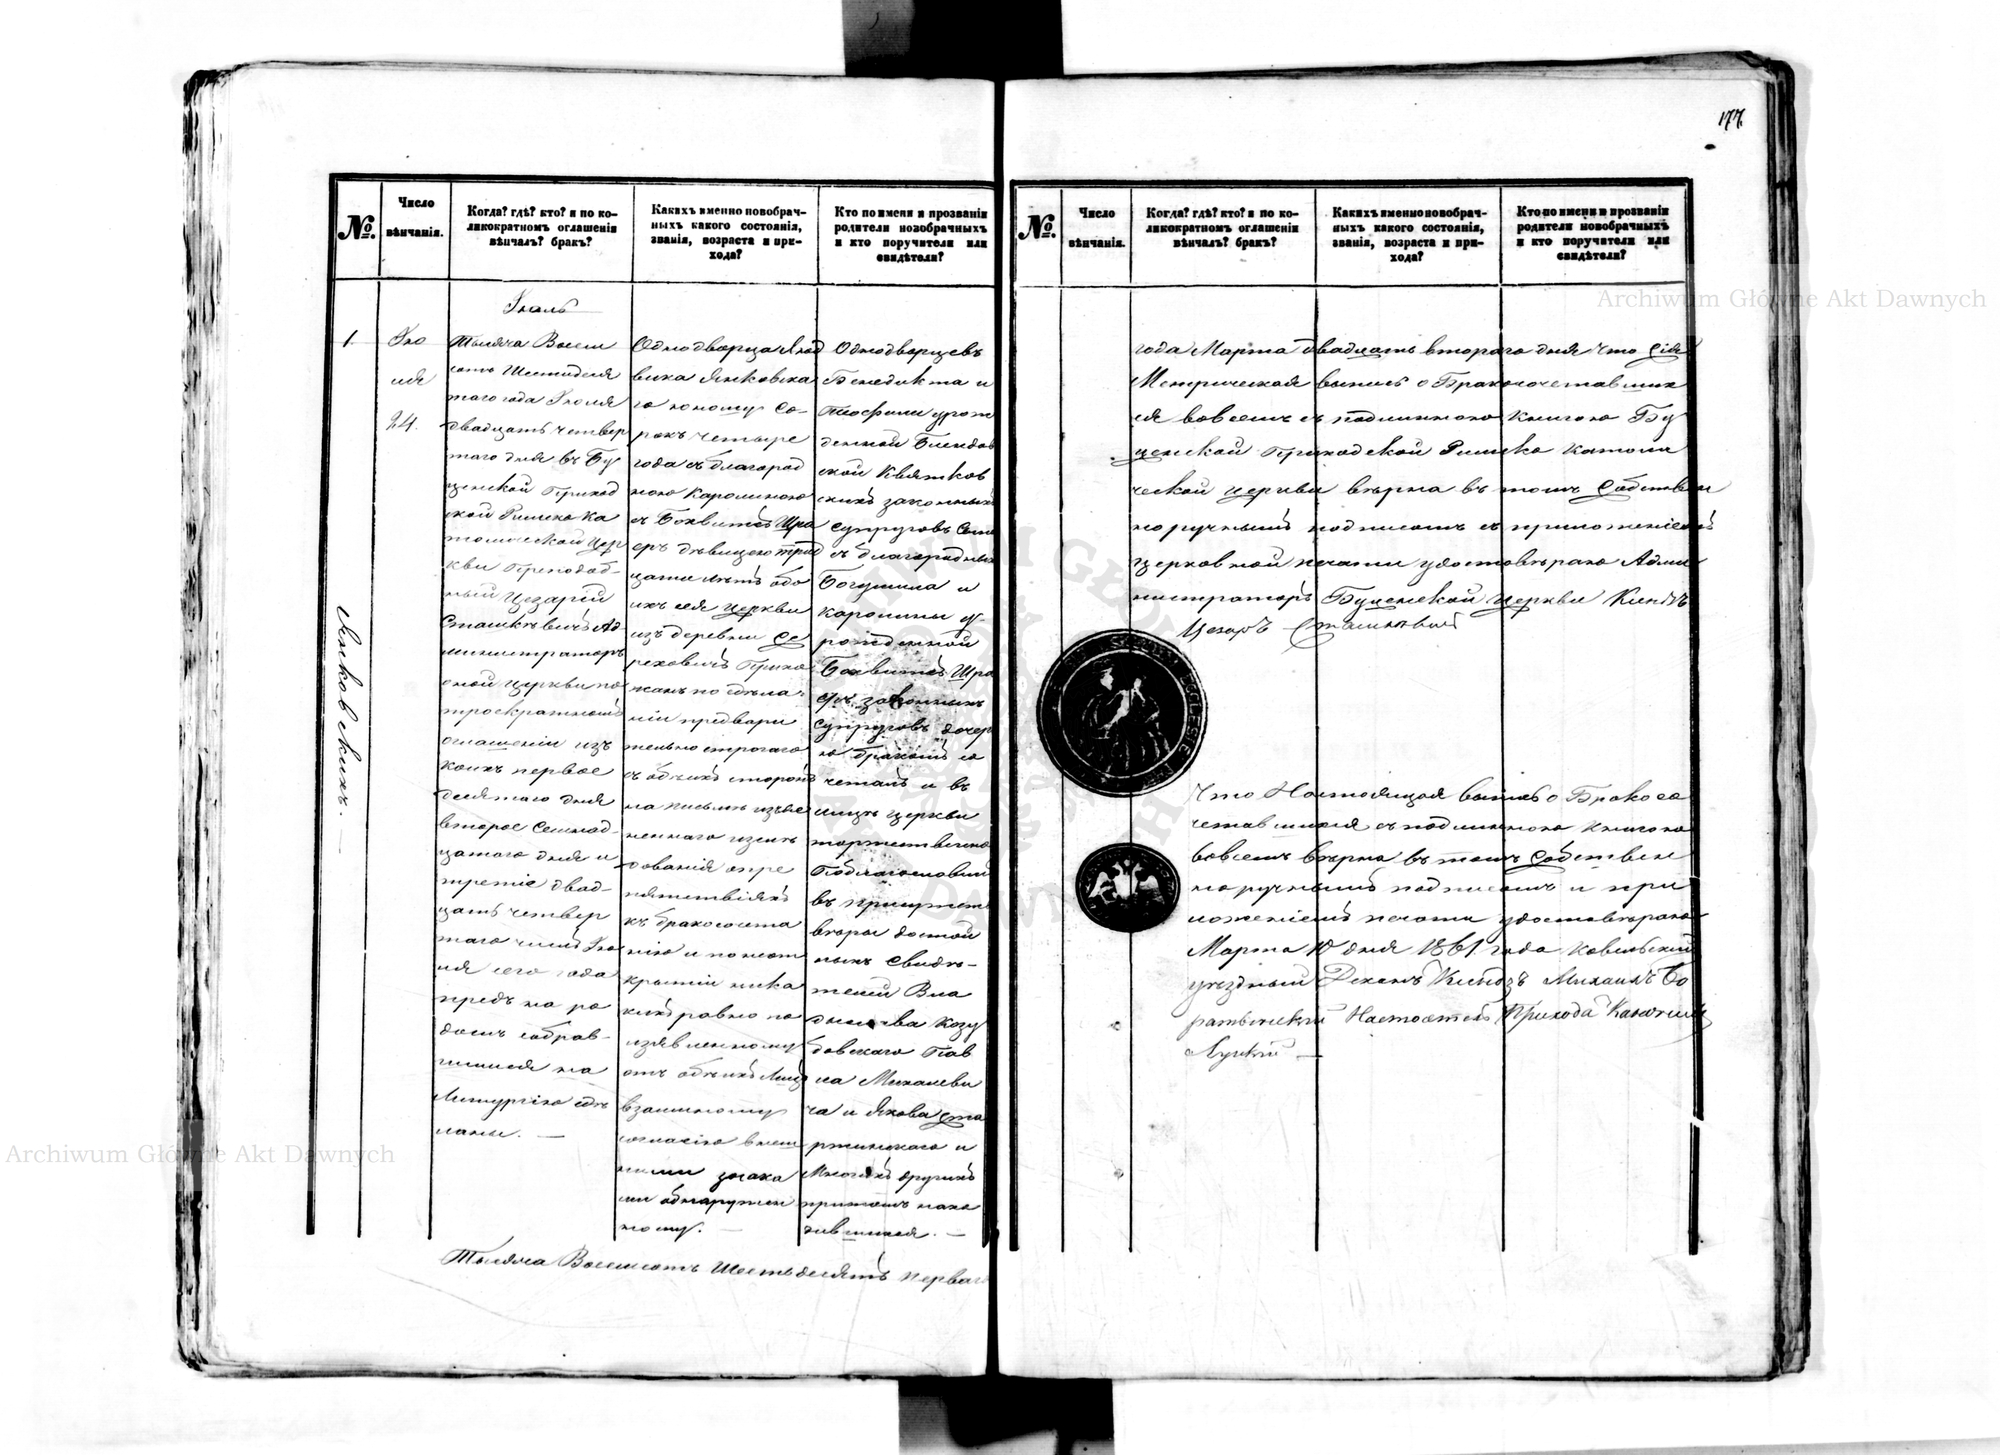 177.
№.
Число
вѣнчанія.
Когда? гдѣ? кто? и по ко-
ликократномъ оглашеніи
вѣнчалъ? бракъ?
Какихъ именно новобрач-
ныхъ какого состоянія,
званія, возраста и при-
хода?
Кто по имени и прозванію
родители новобрачныхъ
и кто поручители или
свидѣтели?
1.
Ію
ля
24.
Янковскихъ. —
Іюль
Тысяча Восем
сотъ Шестидеся
таго года Іюля
двадцать четвер
таго дня въ Бу
ценской Приход
ской Римско Ка
толической Цер
кви Преподоб-
ный Цезарій
Сташкѣвичъ Ад
министраторъ
оной Церкви по
троекратномъ
оглашеніи изъ
коихъ первое
десятаго дня
второе Семнад-
цатаго дня и
третіе двад-
цать четвер
таго числъ Ію
ля сего года
предъ на ро
домъ собрав-
шимся на
Литургію сдѣ
ланы. —
Однодворца Люд
вика Янковска
го юношу Со-
рокъ четыре
года съ благород
ною Каролиною
съ Боквитъ Шра
еръ дѣвицею трид
цати лѣтъ обо
ихъ сея Церкви
изъ деревни Се
реховичъ Прихо
жанъ по здѣла-
ніи предвари
тельно строгаго
съ обѣихъ сторонъ
на письмѣ изъяс
неннаго изслѣ
дованія о пре
пятствіяхъ
къ бракосочета
нію и по неот
крытіи ника
кихъ равно по
изъявленному
отъ обѣихъ Лицъ
взаимному
согласію внеш
ными знака
ми обнаружен
ному. —
Однодворцевъ
Бенедикта и
Теофили урож
денной
ской Квятков
скихъ законныхъ
Супруговъ Сына
съ благородныхъ
Богумила и
Каролины у-
рожденной
Боквитъ Шра
еръ законныхъ
Супруговъ дочер
ю бракомъ со
четалъ и въ
лицѣ церкви
торжественно
Поблагословилъ
въ присутст
віи достой
ныхъ Свидѣ-
телей Вла
дислава Козу
бовскаго Пав
ла Михалеви
ча и Якова Ста
ржинскаго и
Многихъ другихъ
притомъ нахо
дившихся. —
Тысяча Восемсотъ Шестьдесятъ перваго
№.
Число
вѣнчанія.
Когда? гдѣ? кто? и по ко-
ликократномъ оглашеніи
вѣнчалъ? бракъ?
Какихъ именно новобрач-
ныхъ какого состоянія,
званія, возраста и при-
хода?
Кто по имени и прозванію
родители новобрачныхъ
и кто поручители или
свидѣтели?
года Марта двадцать втораго дня Что Сія
Метрическая выпись о Бракосочетавших
ся вовсемъ съ подлинною Книгою Бу
ценской Приходской Римско Католи
ческой Церкви вѣрна въ томъ Собствен
норучнымъ подписомъ съ приложеніемъ
церковной печати удостовѣряю Адми
нистраторъ Буценской Церкви Ксіндзъ
Цезарь Сташкевичъ
Что Настоящая выпись о Бракосо
четавшихся съ подлинною Книгою
вовсемъ вѣрна въ томъ Собствен
норучнымъ подписомъ и при
ложеніемъ печати удостовѣряю
Марта 10 дня 1861 года Ковельскій
уѣздный Деканъ Ксіндзъ Михаилъ Бо
ратынскій Настоятель Прихода
Archiwum Główne Akt Dawnych
Archiwum Główne Akt Dawnych